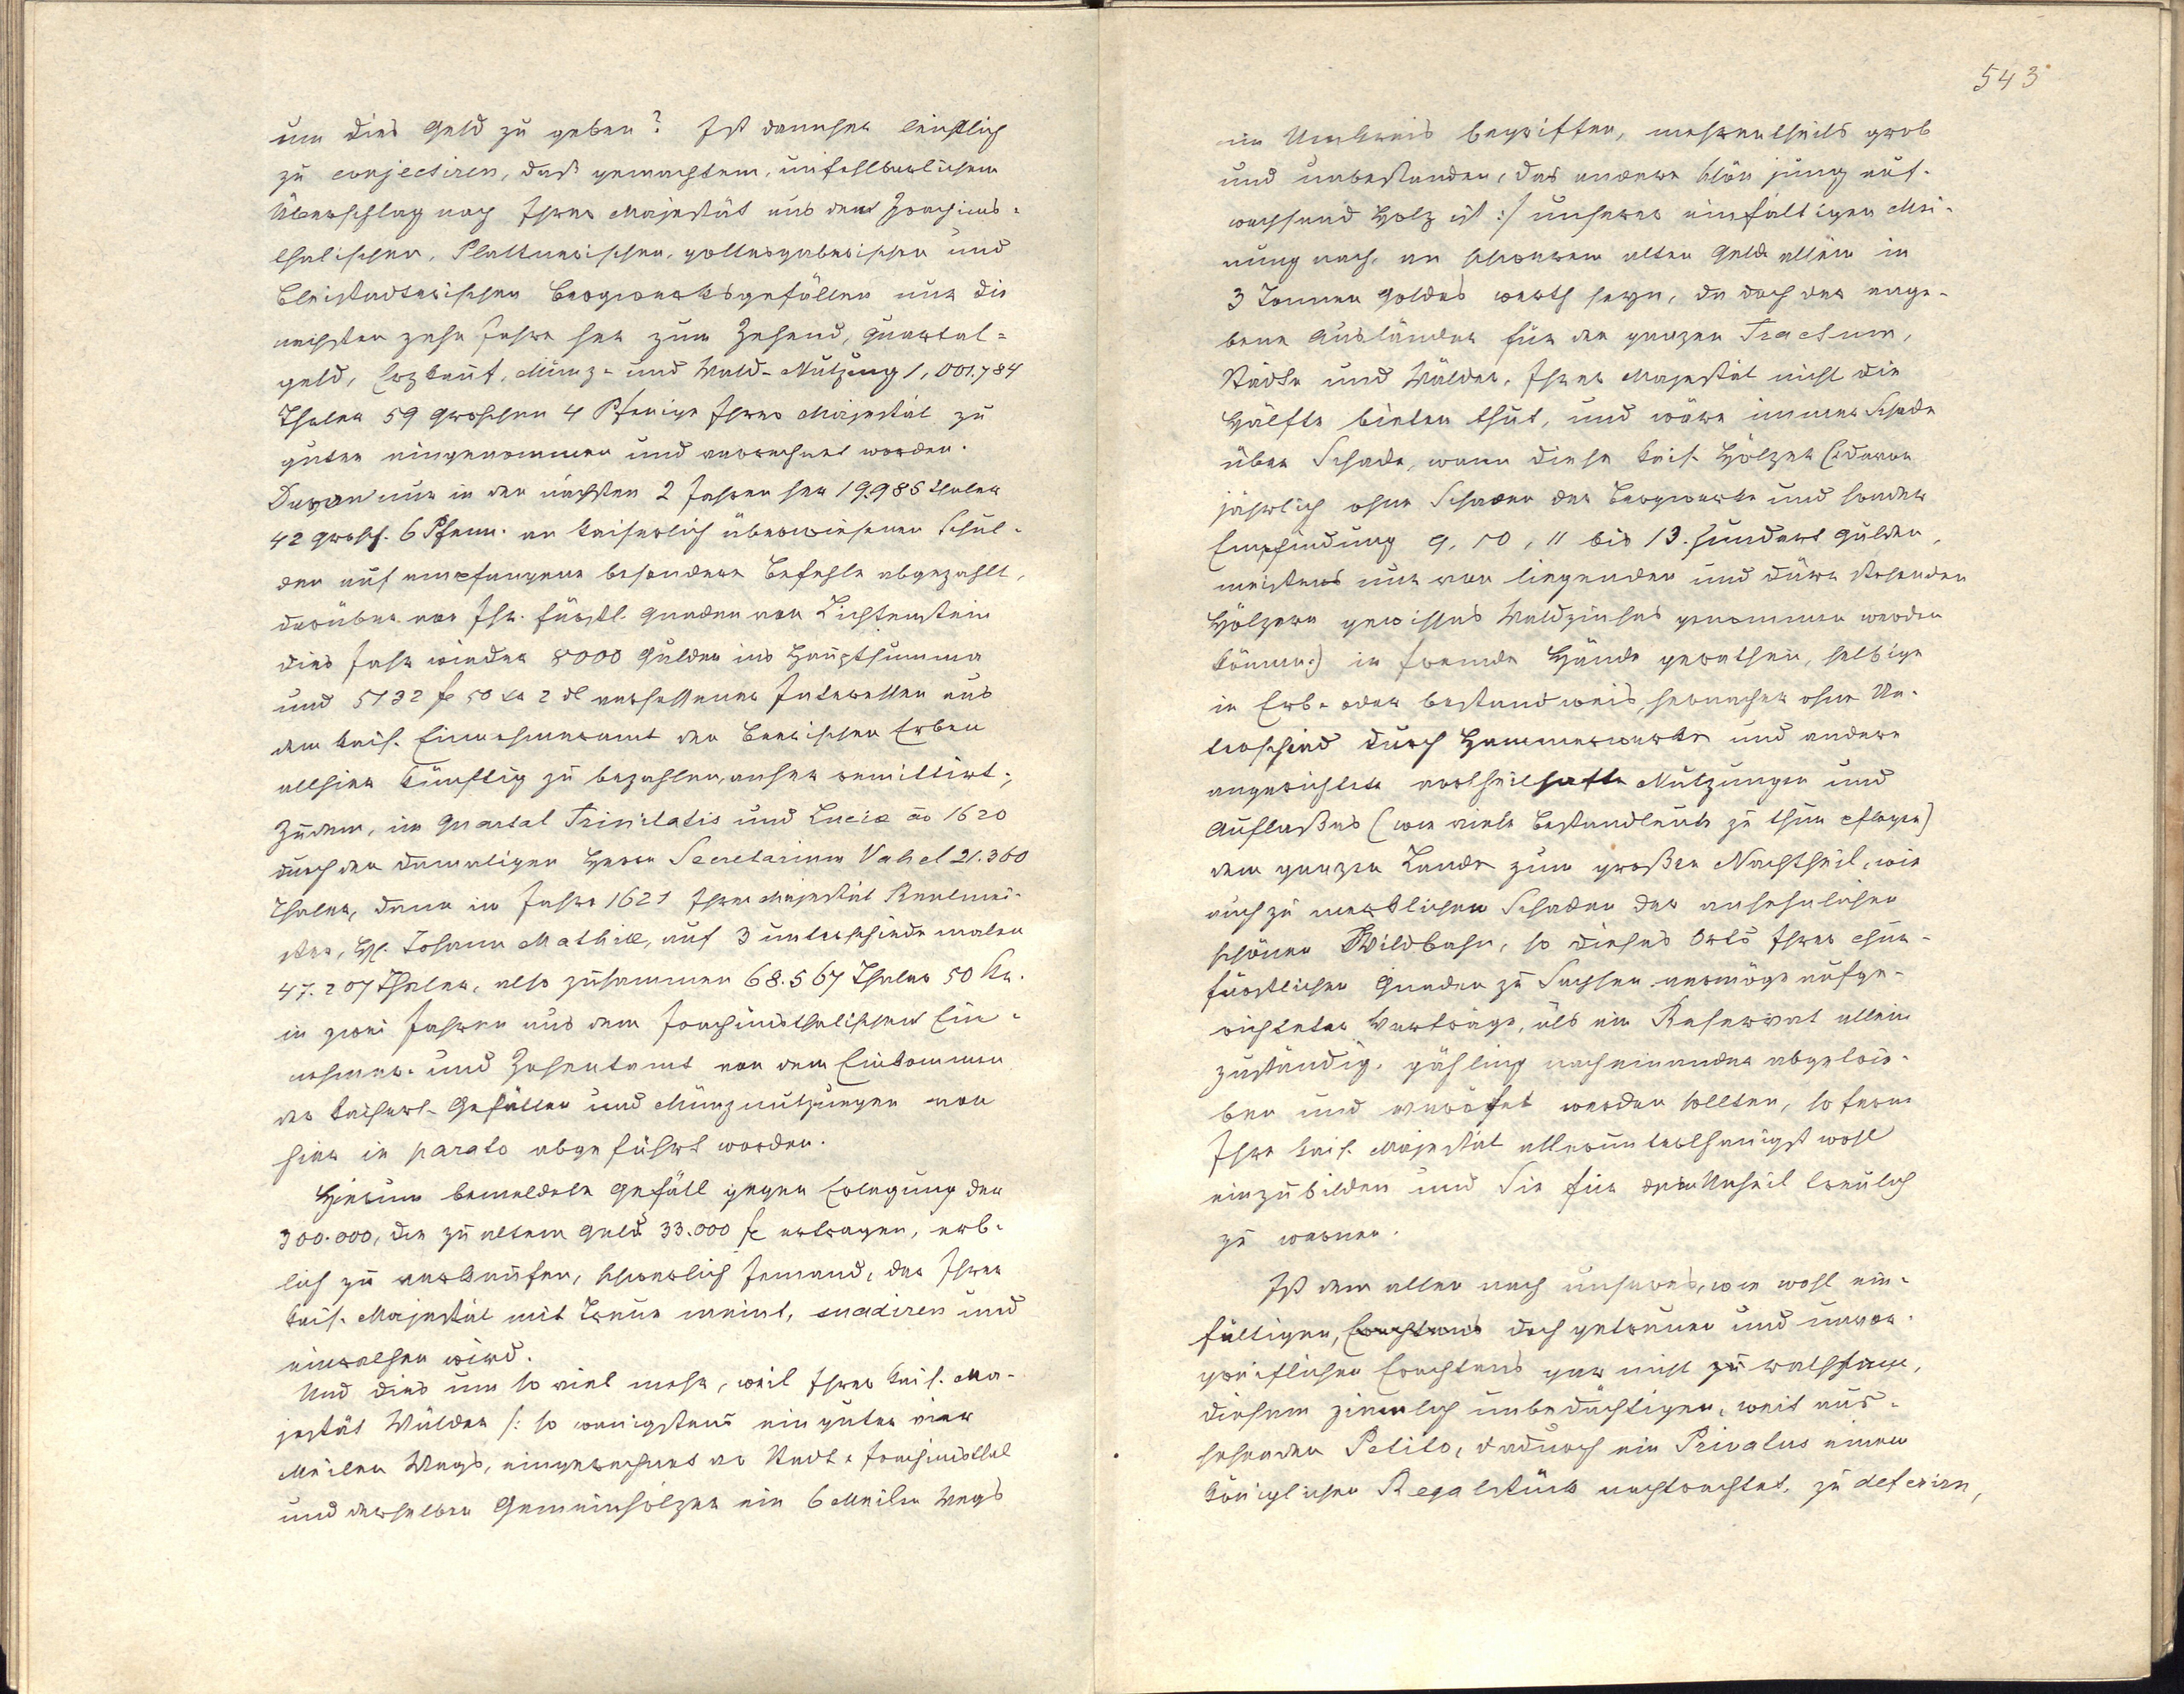 um dies Geld zu geben? Ist dannher leichtlich
zu conjectiren, daß gemachtem, unfehlbarlichem
Überschlag nach Ihrer Majestät aus den Joachims-
thalischen, Plattnerischen, gottesgaberischen und
Bleistadterischen Bergwerksgefällen nur die
nechsten zehn Jahre her zum Zehend, Quartal-
geld, Erzkauf, Münz- und Wald-Nutzung 1,001.784
Thaler 59 Groschen 4 Pfenige Ihrer Majestät zu
guten eingenommen und verrechnet worden.
Davon nur in den nächsten 2 Jahren her 19.985 Thaler
42 Grosch. 6 Pfenn. an kaiserlich überwiesenen Schul-
den auf empfangene besondere Befehle abgezahlt,
darüber von Ihr. fürstl. Gnaden von Lichtenstein
dies Jahr wieder 8000 Gulden ins Hauptsumma
und 5132 f 50 kr 2 dl versessener Interessen aus
dem kais. Einnehmeramt den Beerischen Erben
allhier künftig zu bezahlen, anher remittirt;
Zudem, im Quartal Trinitatis und Luciæ ao 1620
durch den damaligen Herrn Secretarium Vahel 21.360
Thaler, dann im Jahre 1621 Ihrer Majestät Rentmei-
ster, H. Johann Mathiæ, auf 3 unterschiede malen
47.207 Thaler, also zusammen 68.567 Thaler 50 Kr.
in zwei Jahren aus dem Joachimsthalischen Ein-
nehmer- und Zehentamt von dem Einkommen
der kaiserl. Gefällen und Münznutzungen von
hier in parato abgeführt worden.
Hierum bemeldete Gefäll gegen Erlegung der
300.000, die zu altem Geld 33.000 f ertragen, erb-
lich zu verkaufen, schwerlich Jemand, der Ihrer
kais. Majestät mit Treue meint, suadiren und
einrathen wird.
Und dies um so viel mehr, weil Ihrer kais. Ma-
jestät Wälder /: so wenigstens ein guter vier
Meilen Wegs, eingerechnet der Stadt Joachimsthal
und derselben Gemeinhölzer ein 6 Meilen Wegs
543
im Umkreis begriffen, mehrentheils grob
und unbestanden, das andere schön jung auf-
wachsend Holz ist :/ unserer einfältigen Mei-
nung nach, an schwerem alten Gelde allein in
3 Tonnen Goldes werth seyn, da doch der ange-
bene Ausländer für den ganzen Tractum,
Städte und Wälder, Ihrer Majestät nicht die
Hälfte bieten thut, und wäre immer Schade
über Schade, wann diese kais. Hölzer (: davon
jährlich ohne Schaden der Bergwerke und sonder
Empfindung 9, 10, 11 bis 13. hundert Gulden,
meistens nur von liegenden und dürr stehenden
Hölzern gewisses Waldzinses genommen werden
können:) in fremde Hände gerathen, selbige
in Erb- oder bestandweis, hernacher ohne Un-
terschied durch Hammerwerke und andere
angerichtete vortheilhafte Nutzungen und
Auflaßes (wie viele Bestandleute zu thun pflegen)
dem ganzen Lande zum großen Nachtheil, wie
auch zu merklichen Schaden der ansehnlichen
schönen Wildbahn, so dieses Orts Ihrer chur-
fürstlichen Gnaden zu Sachsen vermöge aufge-
richteter Verträge, als ein Reservat allein
zuständig, gähling nacheinander abgetrie-
ben und verödet werden sollten, so ferne
Ihre kais. Majestät allerunterthänigst wohl
einzubilden und Sie für den Unheil treulich
zu warnen.
Ist dem allen nach unseres, wie wohl ein-
fältigen, doch getreuen und unvor-
greiflichen Erachtens gar nicht zu rathsam,
diesem ziemlich unbedächtigen, weit aus-
sehenden Petito, dadurch ein Privatus einen
königlichen Regalstück nachtrachtet, zu deferirn,